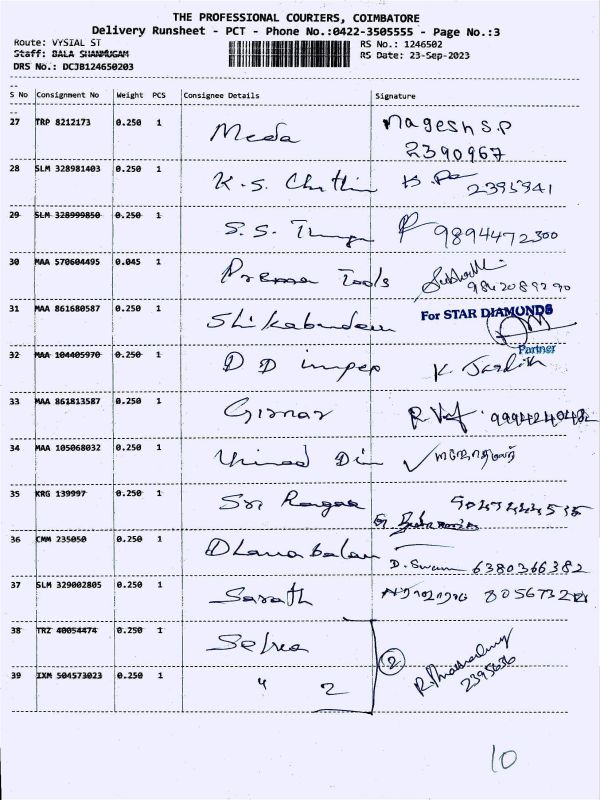 THE PROFESSIONAL COURIERS, COIMBATORE
Delivery Runsheet - PCT - Phone No.:0422-3505555 - Page No.:3
Route: VYSIAL ST RS No.: 1246502
Staff: BALA SHANMUGAM RS Date: 23-Sep-2023
DRS No.: DCJB124650203
S No Consignment No Weight PCS Consignee Details Signature
27 TRP 8212173 0.250 1 Meda Magesh S.P
2390967
28 SLM 328981403 0.250 1 K.S. 2395941
29 SLM 328999850 0.250 1 S.S. 9894472300
30 MAA 570604495 0.045 1 Prema Tools
9842089290
31 MAA 861680587 0.250 1 For STAR DIAMONDS
Partner
32 MAA 104405970 0.250 1 D D impex K.
33 MAA 861813587 0.250 1 Girnar
34 MAA 105068032 0.250 1
35 KRG 139997 0.250 1 Sri
36 CMM 235050 0.250 1 Dhanabalan
D. Swam 6380366382
37 SLM 329002805 0.250 1 Sarath
38 TRZ 40054474 0.250 1 2
39 IXM 504573023 0.250 1 " 2 2395636
10